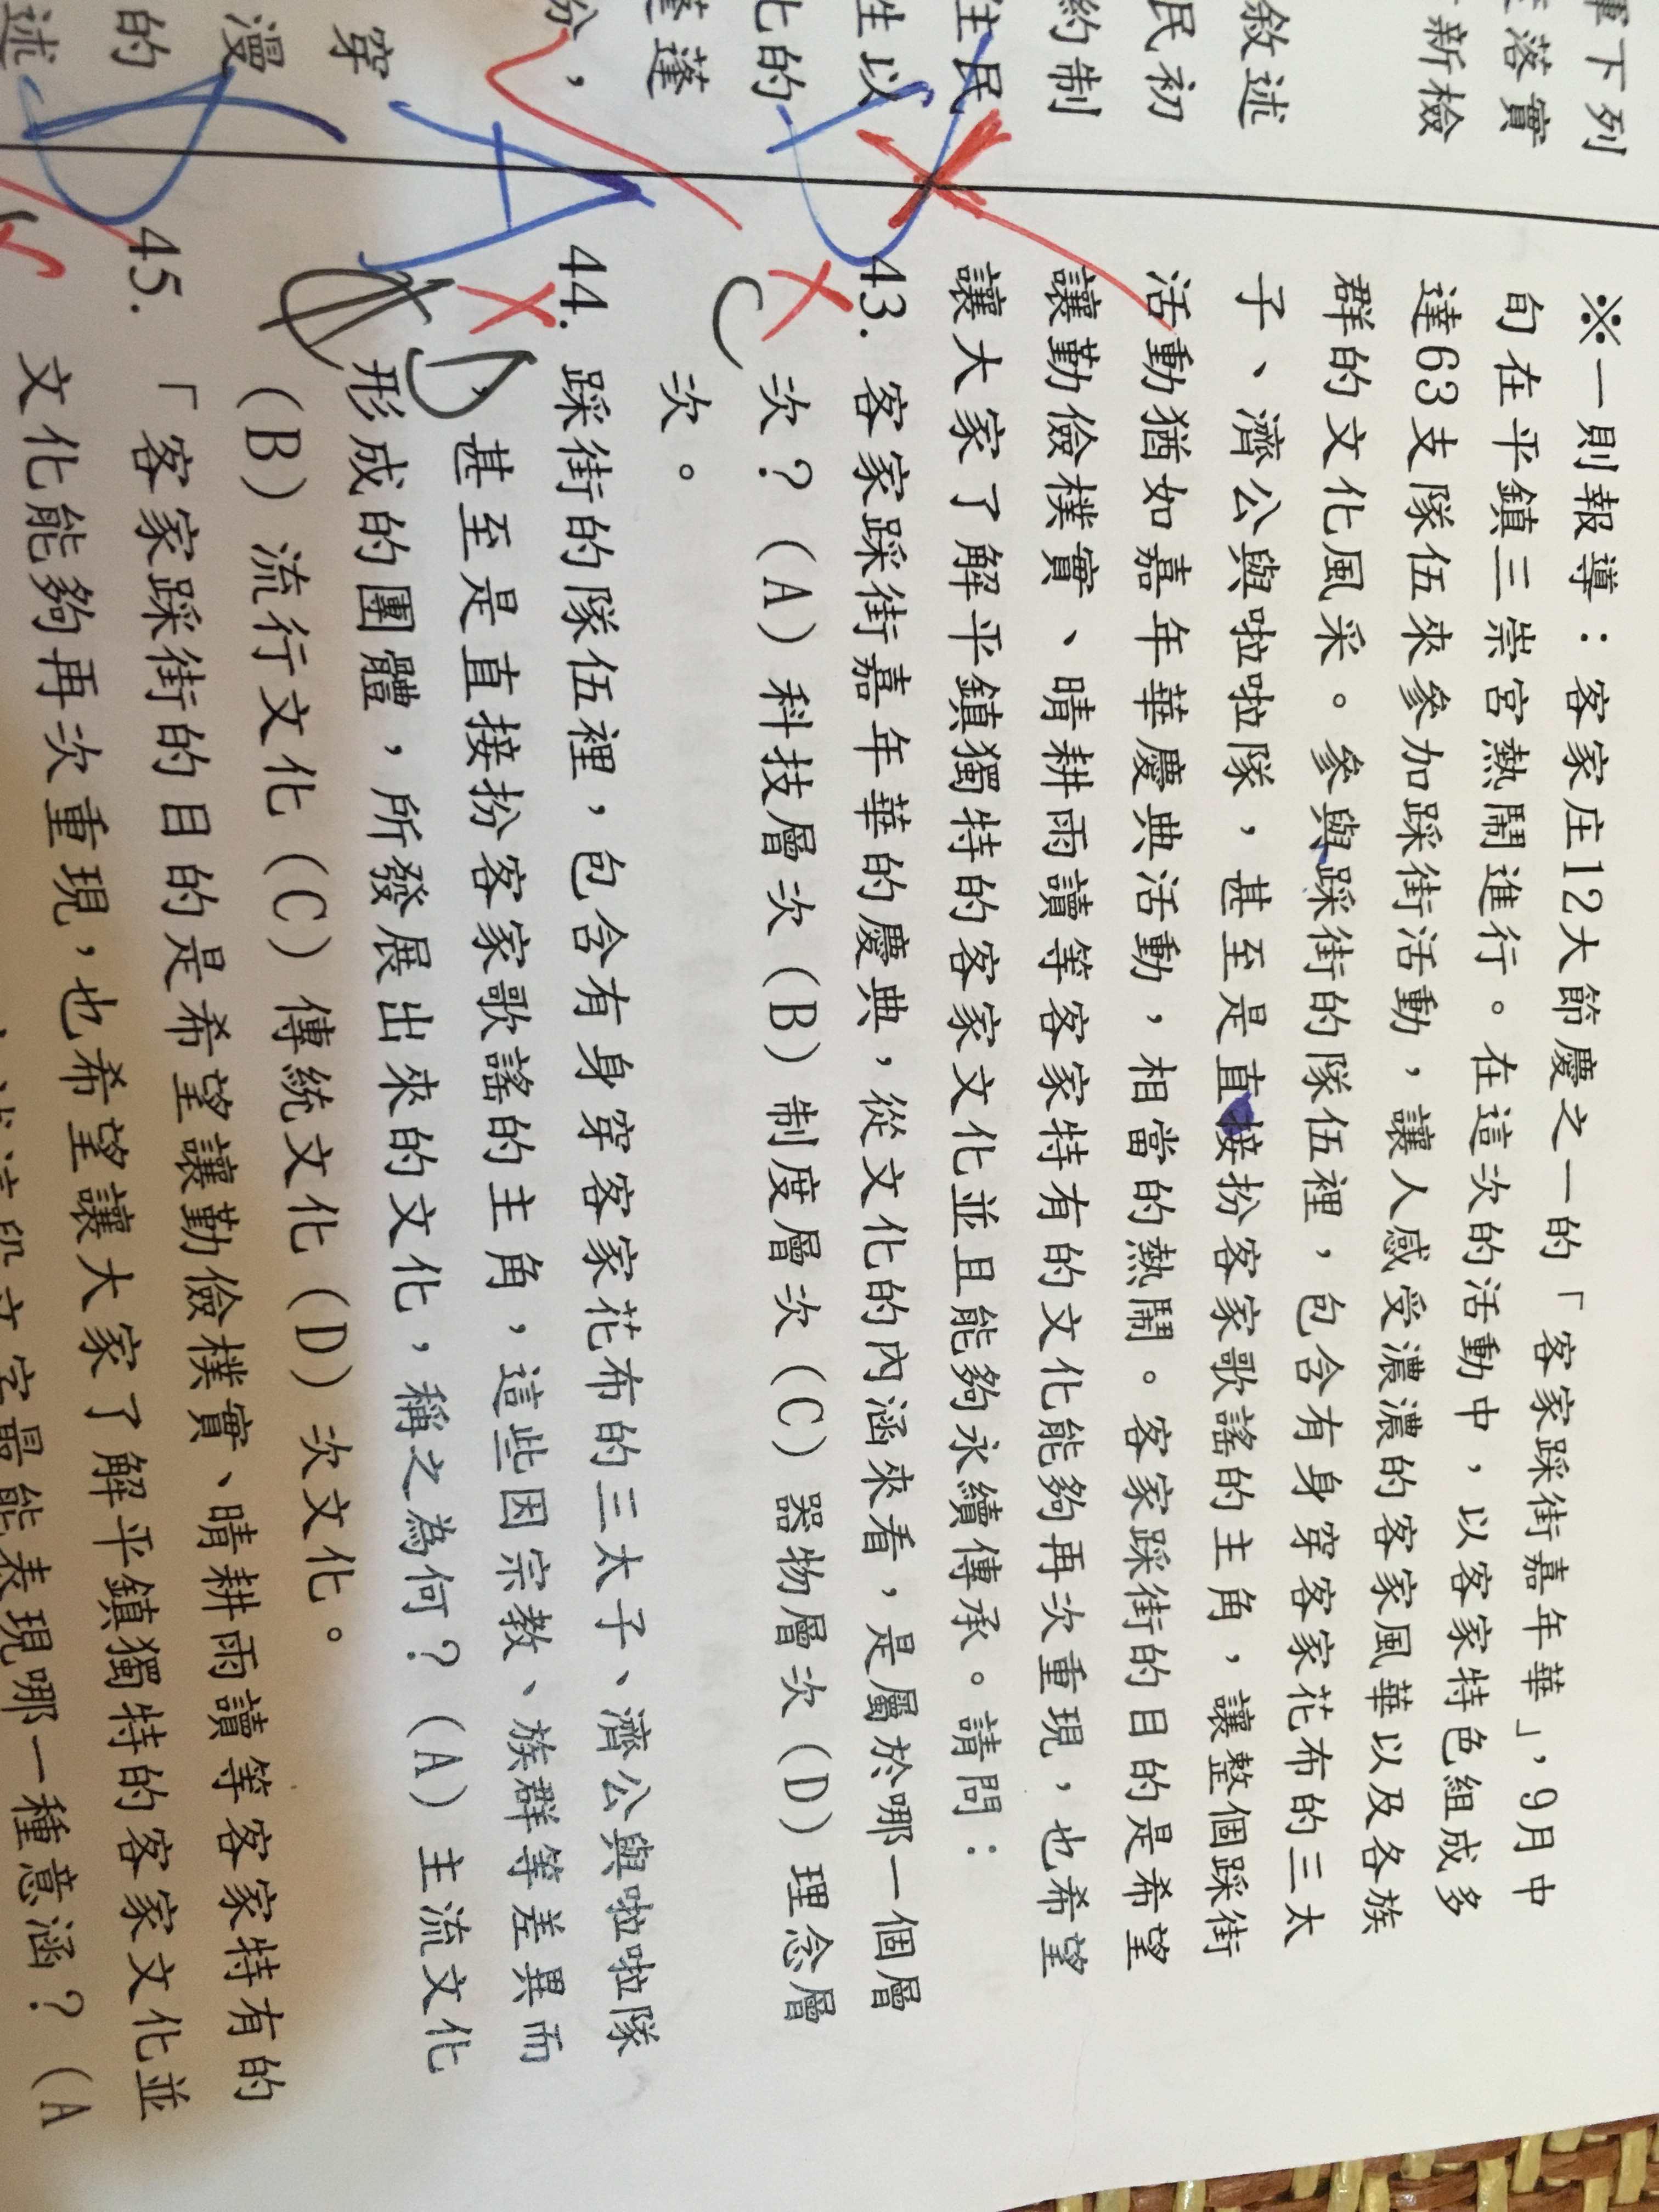 軍下列
落實
新檢
敘述
民初
約制
住民
生以
化的
蓬蓬
份，
穿
漫
的
述
※一則報導：客家庄12大節慶之一的「客家踩街嘉年華」，9月中
旬在平鎮三崇宮熱鬧進行。在這次的活動中，以客家特色組成多
達63支隊伍來參加踩街活動，讓人感受濃濃的客家風華以及各族
群的文化風采。參與踩街的隊伍裡，包含有身穿客家花布的三太
子、濟公與啦啦隊，甚至是直接扮客家歌謠的主角，讓整個踩街
活動猶如嘉年華慶典活動，相當的熱鬧。客家踩街的目的是希望
讓勤儉樸實、晴耕雨讀等客家特有的文化能夠再次重現，也希望
讓大家了解平鎮獨特的客家文化並且能夠永續傳承。請問：
D 43. 客家踩街嘉年華的慶典，從文化的內涵來看，是屬於哪一個層
C 次？(A) 科技層次 (B) 制度層次 (C) 器物層次 (D) 理念層
次。
A 44. 踩街的隊伍裡，包含有身穿客家花布的三太子、濟公與啦啦隊
D 甚至是直接扮客家歌謠的主角，這些因宗教、族群等差異而
形成的團體，所發展出來的文化，稱之為何？(A) 主流文化
(B) 流行文化 (C) 傳統文化 (D) 次文化。
D 45. 「客家踩街的目的是希望讓勤儉樸實、晴耕雨讀等客家特有的
文化能夠再次重現，也希望讓大家了解平鎮獨特的客家文化並
段文字最能表現哪一種意涵？(A